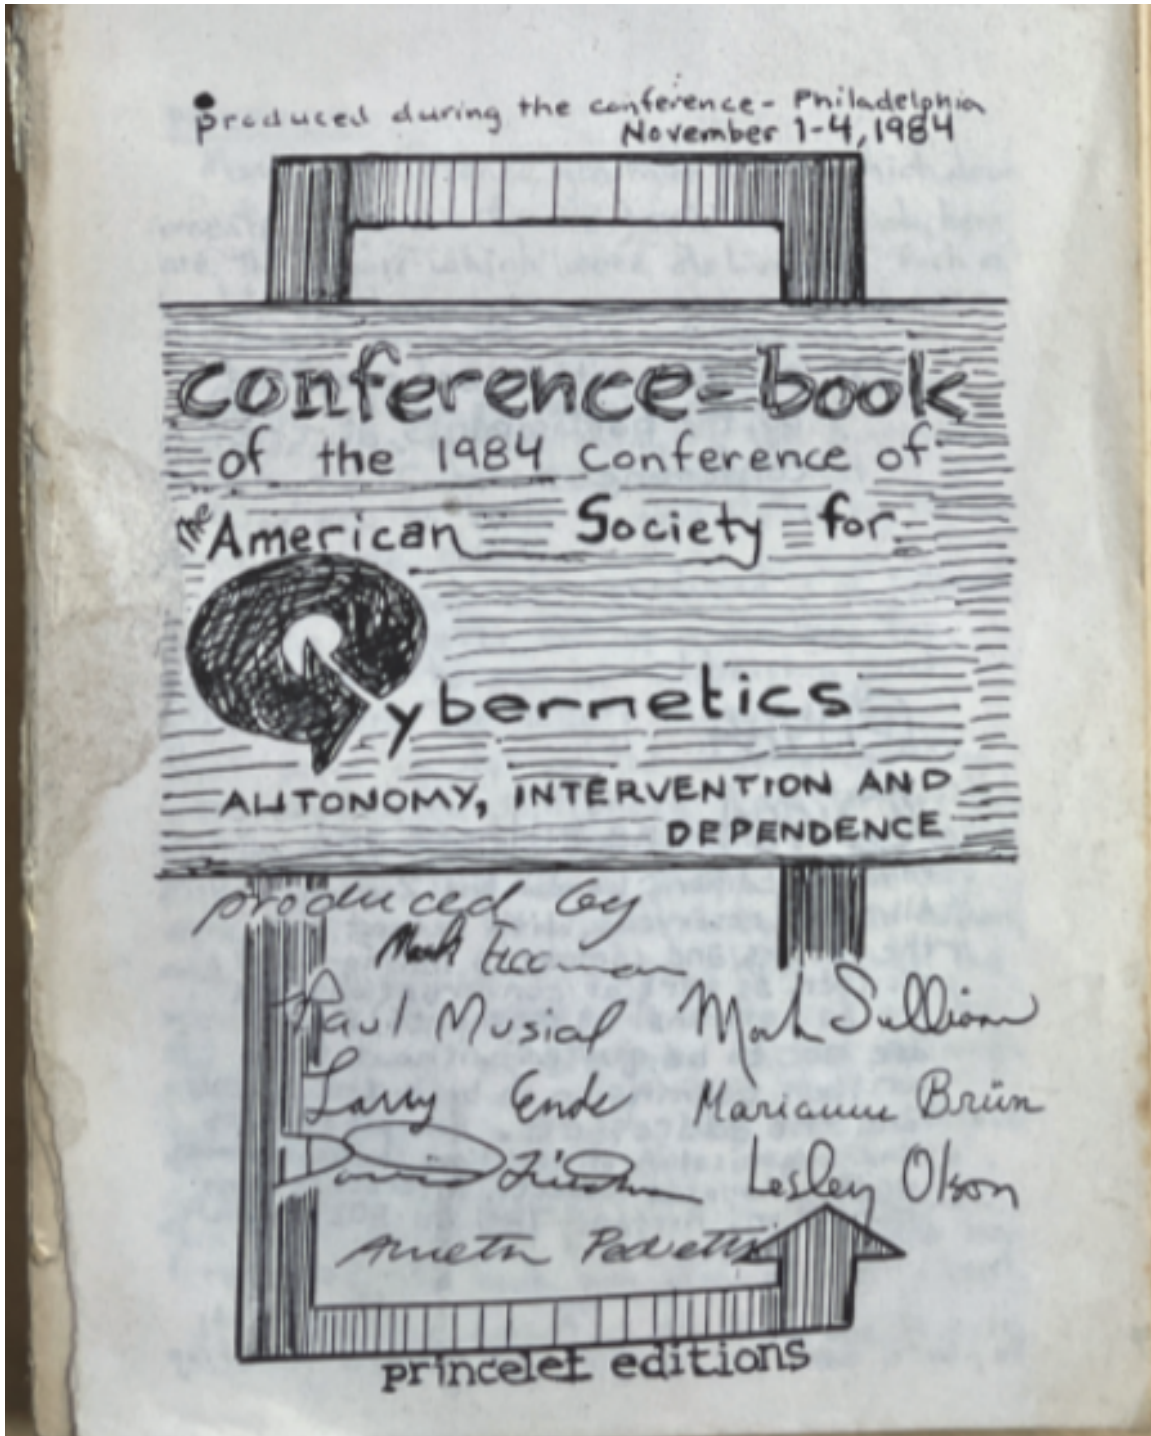 produced during the conference - Philadelphia
November 1-4, 1984
conference-book
of the 1984 Conference of
The American Society for
Cybernetics
AUTONOMY, INTERVENTION AND
DEPENDENCE
produced by
Mark
Paul Musial Mark Sullivan
Larry Ende Marianne Brün
David Lesley Olson
Annetta Pedretti
princelet editions